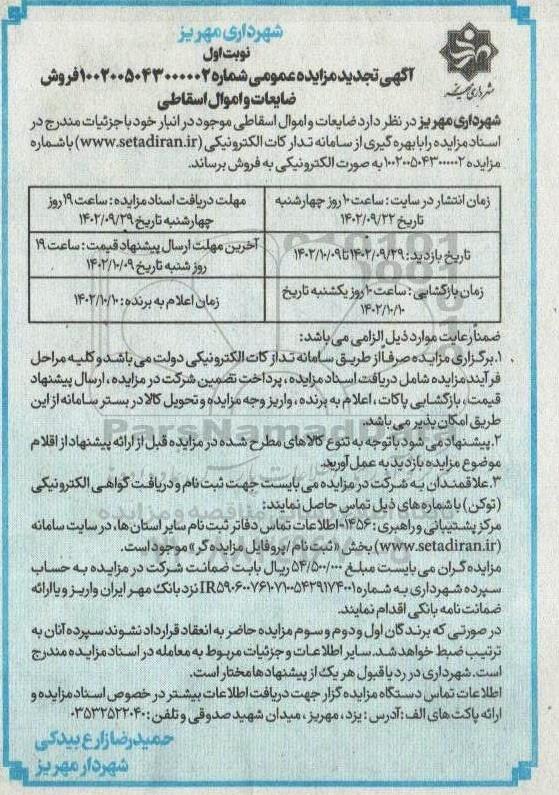 شهرداری مهریز
نوبت اول
آگهی تجدید مزایده عمومی شماره ۱۰۰۲۰۰۵۰۴۳۰۰۰۰۰۲ فروش
ضایعات و اموال اسقاطی
شهرداری مهریز
شهرداری مهریز در نظر دارد ضایعات و اموال اسقاطی موجود در انبار خود با جزئیات مندرج در
اسناد مزایده را با بهره گیری از سامانه تدارکات الکترونیکی (www.setadiran.ir) با شماره
مزایده ۱۰۰۲۰۰۵۰۴۳۰۰۰۰۰۲ به صورت الکترونیکی به فروش برساند.
زمان انتشار در سایت : ساعت ۱۰ روز چهارشنبه
تاریخ ۱۴۰۲/۰۹/۲۲
مهلت دریافت اسناد مزایده : ساعت ۱۹ روز
چهارشنبه تاریخ ۱۴۰۲/۰۹/۲۹
تاریخ بازدید : ۱۴۰۲/۰۹/۲۹ تا ۱۴۰۲/۱۰/۰۹
آخرین مهلت ارسال پیشنهاد قیمت : ساعت ۱۹
روز شنبه تاریخ ۱۴۰۲/۱۰/۰۹
زمان بازگشایی : ساعت ۱۰ روز یکشنبه تاریخ
۱۴۰۲/۱۰/۱۰
زمان اعلام به برنده : ۱۴۰۲/۱۰/۱۰
ضمناً رعایت موارد ذیل الزامی می باشد:
۱. برگزاری مزایده صرفا از طریق سامانه تدارکات الکترونیکی دولت می باشد و کلیه مراحل
فرآیند مزایده شامل دریافت اسناد مزایده ، پرداخت تضمین شرکت در مزایده ، ارسال پیشنهاد
قیمت ، بازگشایی پاکات ، اعلام به برنده ، واریز وجه مزایده و تحویل کالا در بستر سامانه از این
طریق امکان پذیر می باشد.
۲. پیشنهاد می شود با توجه به تنوع کالاهای مطرح شده در مزایده قبل از ارائه پیشنهاد از اقلام
موضوع مزایده بازدید به عمل آورید.
۳. علاقمندان به شرکت در مزایده می بایست جهت ثبت نام و دریافت گواهی الکترونیکی
(توکن) با شماره های ذیل تماس حاصل نمایند:
مرکز پشتیبانی و راهبری : ۱۴۵۶ - اطلاعات تماس دفاتر ثبت نام سایر استان ها ، در سایت سامانه
(www.setadiran.ir) بخش «ثبت نام / پروفایل مزایده گر» موجود است.
مزایده گران می بایست مبلغ ۵۴/۵۰۰/۰۰۰ ریال بابت ضمانت شرکت در مزایده به حساب
سپرده شهرداری به شماره IR۵۹۰۶۰۰۷۶۱۰۷۱۰۰۵۴۲۹۱۷۴۰۰۱ نزد بانک مهر ایران واریز و یا ارائه
ضمانت نامه بانکی اقدام نمایند.
در صورتی که برندگان اول و دوم و سوم مزایده حاضر به انعقاد قرارداد نشوند سپرده آنان به
ترتیب ضبط خواهد شد. سایر اطلاعات و جزئیات مربوط به معامله در اسناد مزایده مندرج
است. شهرداری در رد یا قبول هر یک از پیشنهادها مختار است.
اطلاعات تماس دستگاه مزایده گزار جهت دریافت اطلاعات بیشتر در خصوص اسناد مزایده و
ارائه پاکت های الف : آدرس : یزد ، مهریز ، میدان شهید صدوقی و تلفن : ۰۳۵۳۲۵۲۲۰۴۰
حمیدرضا زارع بیدکی
شهردار مهریز